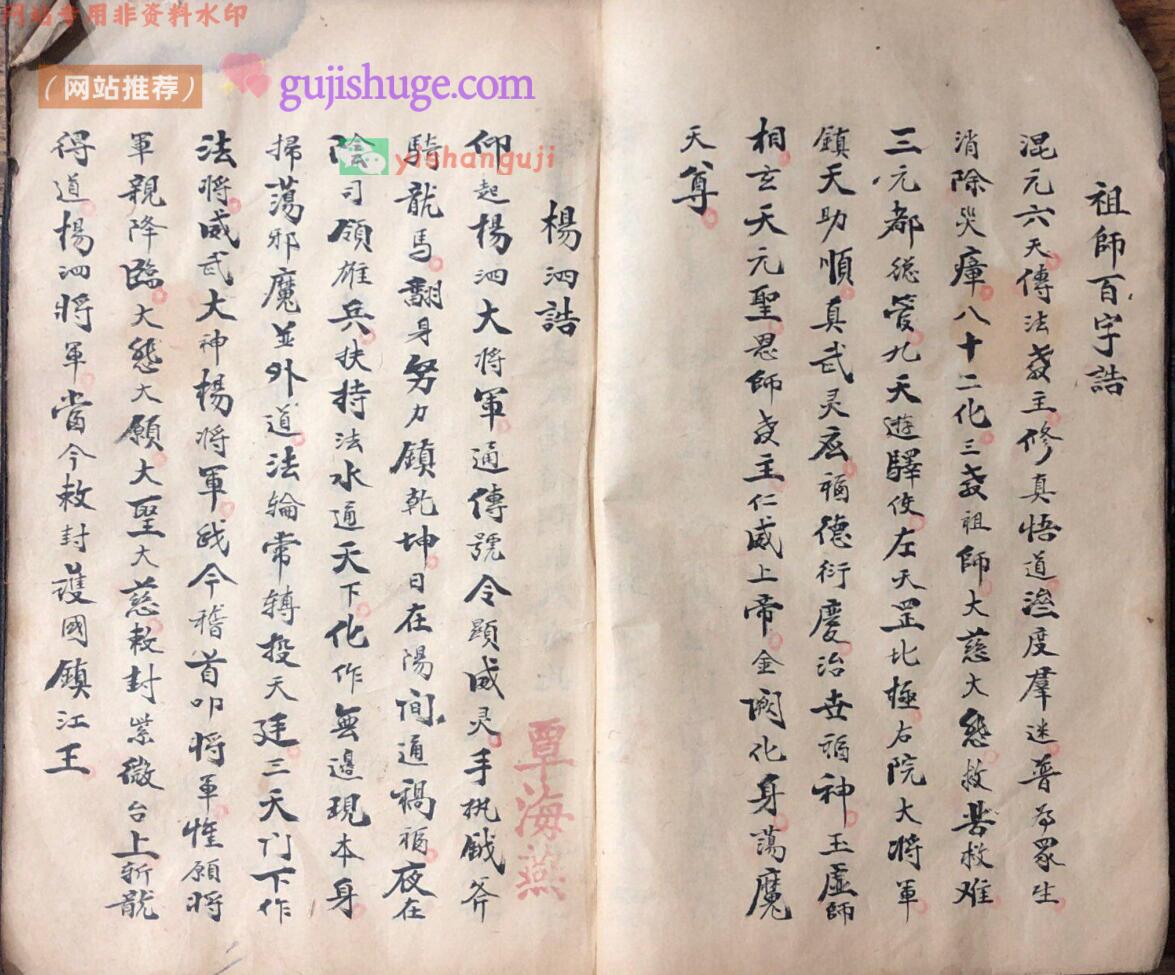 网站专用非资料水印
（网站推荐）
gujishuge.com
yishanguji
祖師百字誥
混元六天傳法教主修真悟道濟度羣迷普为眾生
消除災瘴八十二化三教祖師大慈大悲救苦救难
三元都總管九天遊驛使左天罡北極右院大將軍
鎮天助順真武灵应福德衍慶治世福神玉虛師
相玄天元聖恩師教主仁威上帝金闕化身蕩魔
天尊
楊泗誥
仰起楊泗大将軍通傳號令顯威灵手执鉞斧
騎龍馬翻身努力鎮乾坤日在陽间通禍福夜在
陰司領雄兵扶持法水通天下化作無邊現本身
掃蕩邪魔並外道法轮常轉投天廷三天门下作
法将威武大神楊将軍我今稽首叩将軍惟願将
軍親降臨大悲大願大聖大慈敕封紫微台上斩龍
得道楊泗將軍當今敕封護國鎮江王
覃海燕